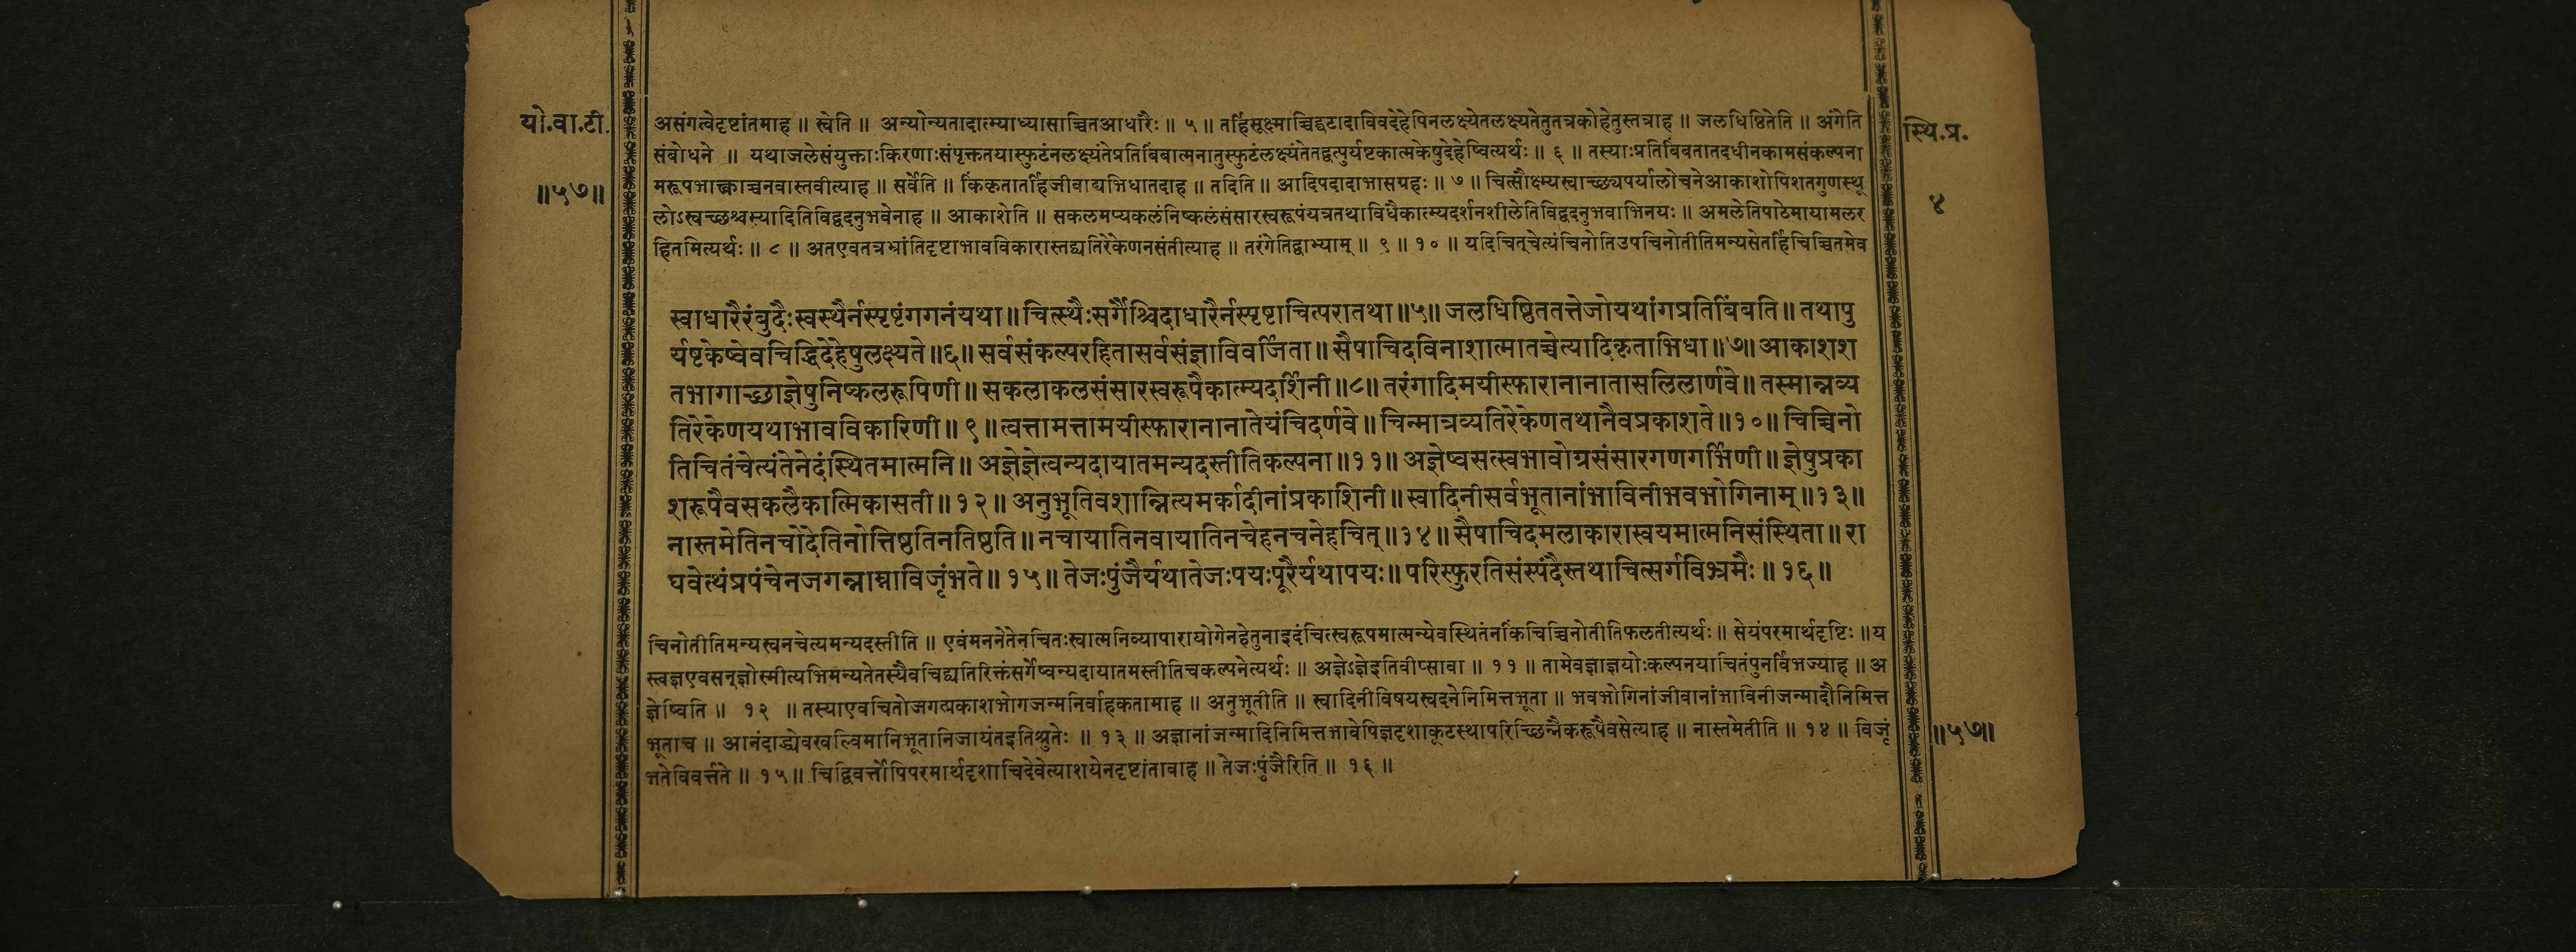 यो.वा.टी.
॥५७॥
स्थि.प्र.
४
असंगत्वेदृष्टांतमाह ॥ स्वेति ॥ अन्योन्यतादात्म्याध्यासाच्चितआधारैः ॥ ५ ॥ तर्हिसूक्ष्माचिद्घटादाविवदेहेपिनलक्ष्येतलक्ष्यतेतुतत्रकोहेतुस्तत्राह ॥ जलधिष्ठितेति ॥ अंगेति
संबोधने ॥ यथाजलेसंयुक्ताःकिरणाःसंपृक्ततयास्फुटंनलक्ष्यंतेप्रतिबिंबात्मनातुस्फुटंलक्ष्यंतेतद्वत्पुर्यष्टकात्मकेषुदेहेष्वित्यर्थः ॥ ६ ॥ तस्याःप्रतिबिंबतातदधीनकामसंकल्पना
मरूपभाक्त्वाच्चनवास्तवीत्याह ॥ सर्वेति ॥ किंकृतातर्हिजीवाद्यभिधातदाह ॥ तदिति ॥ आदिपदादाभासग्रहः ॥ ७ ॥ चित्सौक्ष्म्यस्वाच्छ्यपर्यालोचनेआकाशोपिशतगुणस्थू
लोऽस्वच्छश्चस्यादितिविद्वदनुभवेनाह ॥ आकाशेति ॥ सकलमप्यकलंनिष्कलंसंसारस्वरूपंयत्रतथाविधैकात्म्यदर्शनशीलेतिविद्वदनुभवाभिनयः ॥ अमलेतिपाठेमायामलर
हितमित्यर्थः ॥ ८ ॥ अतएवतत्रभ्रांतिदृष्टाभावविकारास्तद्व्यतिरेकेणनसंतीत्याह ॥ तरंगेतिद्वाभ्याम् ॥ ९ ॥ १० ॥ यदिचित्चेत्यंचिनोतिउपचिनोतीतिमन्यसेतर्हिचिच्चितमेव
स्वाधारैरंबुदैःस्वस्थैर्नस्पृष्टंगगनंयथा ॥ चित्स्थैःसर्गैश्चिदाधारैर्नस्पृष्टाचित्परातथा ॥५॥ जलधिष्ठिततत्तेजोयथांगप्रतिबिंबति ॥ तथापु
र्यष्टकेष्वेवचिद्धिदेहेषुलक्ष्यते ॥६॥ सर्वसंकल्परहितासर्वसंज्ञाविवर्जिता ॥ सैषाचिदविनाशात्मातच्चेत्यादिकृताभिधा ॥७॥ आकाशश
तभागाच्छाज्ञेषुनिष्कलरूपिणी ॥ सकलाकलसंसारस्वरूपैकात्म्यदर्शिनी ॥८॥ तरंगादिमयीस्फारानानातासलिलार्णवे ॥ तस्मान्नव्य
तिरेकेणयथाभावविकारिणी ॥ ९ ॥ त्वत्तामत्तामयीस्फारानानातेयंचिदर्णवे ॥ चिन्मात्रव्यतिरेकेणतथानैवप्रकाशते ॥१०॥ चिच्चिनो
तिचितंचेत्यंतेनेदंस्थितमात्मनि ॥ अज्ञेज्ञेत्वन्यदायातमन्यदस्तीतिकल्पना ॥११॥ अज्ञेष्वसत्स्वभावोग्रसंसारगणगर्भिणी ॥ ज्ञेषुप्रका
शरूपैवसकलैकात्मिकासती ॥ १२ ॥ अनुभूतिवशान्नित्यमर्कादीनांप्रकाशिनी ॥ स्वादिनीसर्वभूतानांभाविनीभवभोगिनाम् ॥१३॥
नास्तमेतिनचोदेतिनोत्तिष्ठतिनतिष्ठति ॥ नचायातिनवायातिनचेहनचनेहचित् ॥१४॥ सैषाचिदमलाकारास्वयमात्मनिसंस्थिता ॥ रा
घवेत्थंप्रपंचेनजगन्नाम्नाविजृंभते ॥ १५ ॥ तेजःपुंजैर्यथातेजःपयःपूरैर्यथापयः ॥ परिस्फुरतिसंस्पंदैस्तथाचित्सर्गविभ्रमैः ॥ १६ ॥
चिनोतीतिमन्यस्वनचेत्यमन्यदस्तीति ॥ एवंमननेतेनचितःस्वात्मनिव्यापारायोगेनहेतुनाइदंचित्स्वरूपमात्मन्येवस्थितंनकिंचिच्चिनोतीतिफलतीत्यर्थः ॥ सेयंपरमार्थदृष्टिः ॥ य
स्त्वज्ञएवसन्ज्ञोस्मीत्यभिमन्यतेतस्यैवचिद्व्यतिरिक्तंसर्गेष्वन्यदायातमस्तीतिचकल्पनेत्यर्थः ॥ अज्ञेऽज्ञेइतिवीप्सावा ॥ ११ ॥ तामेवज्ञाज्ञयोःकल्पनयाचितंपुनर्विभज्याह ॥ अ
ज्ञेष्विति ॥ १२ ॥ तस्याएवचितोजगत्प्रकाशभोगजन्मनिर्वाहकतामाह ॥ अनुभूतीति ॥ स्वादिनीविषयस्वदनेनिमित्तभूता ॥ भवभोगिनांजीवानांभाविनीजन्मादौनिमित्त
भूताच ॥ आनंदाद्ध्येवखल्विमानिभूतानिजायंतइतिश्रुतेः ॥ १३ ॥ अज्ञानांजन्मादिनिमित्तभावेपिज्ञदृशाकूटस्थापरिच्छिन्नैकरूपैवसेत्याह ॥ नास्तमेतीति ॥ १४ ॥ विजृं
भतेविवर्त्तते ॥ १५ ॥ चिद्विवर्त्तोपिपरमार्थदृशाचिदेवेत्याशयेनदृष्टांतावाह ॥ तेजःपुंजैरिति ॥ १६ ॥
॥५७॥